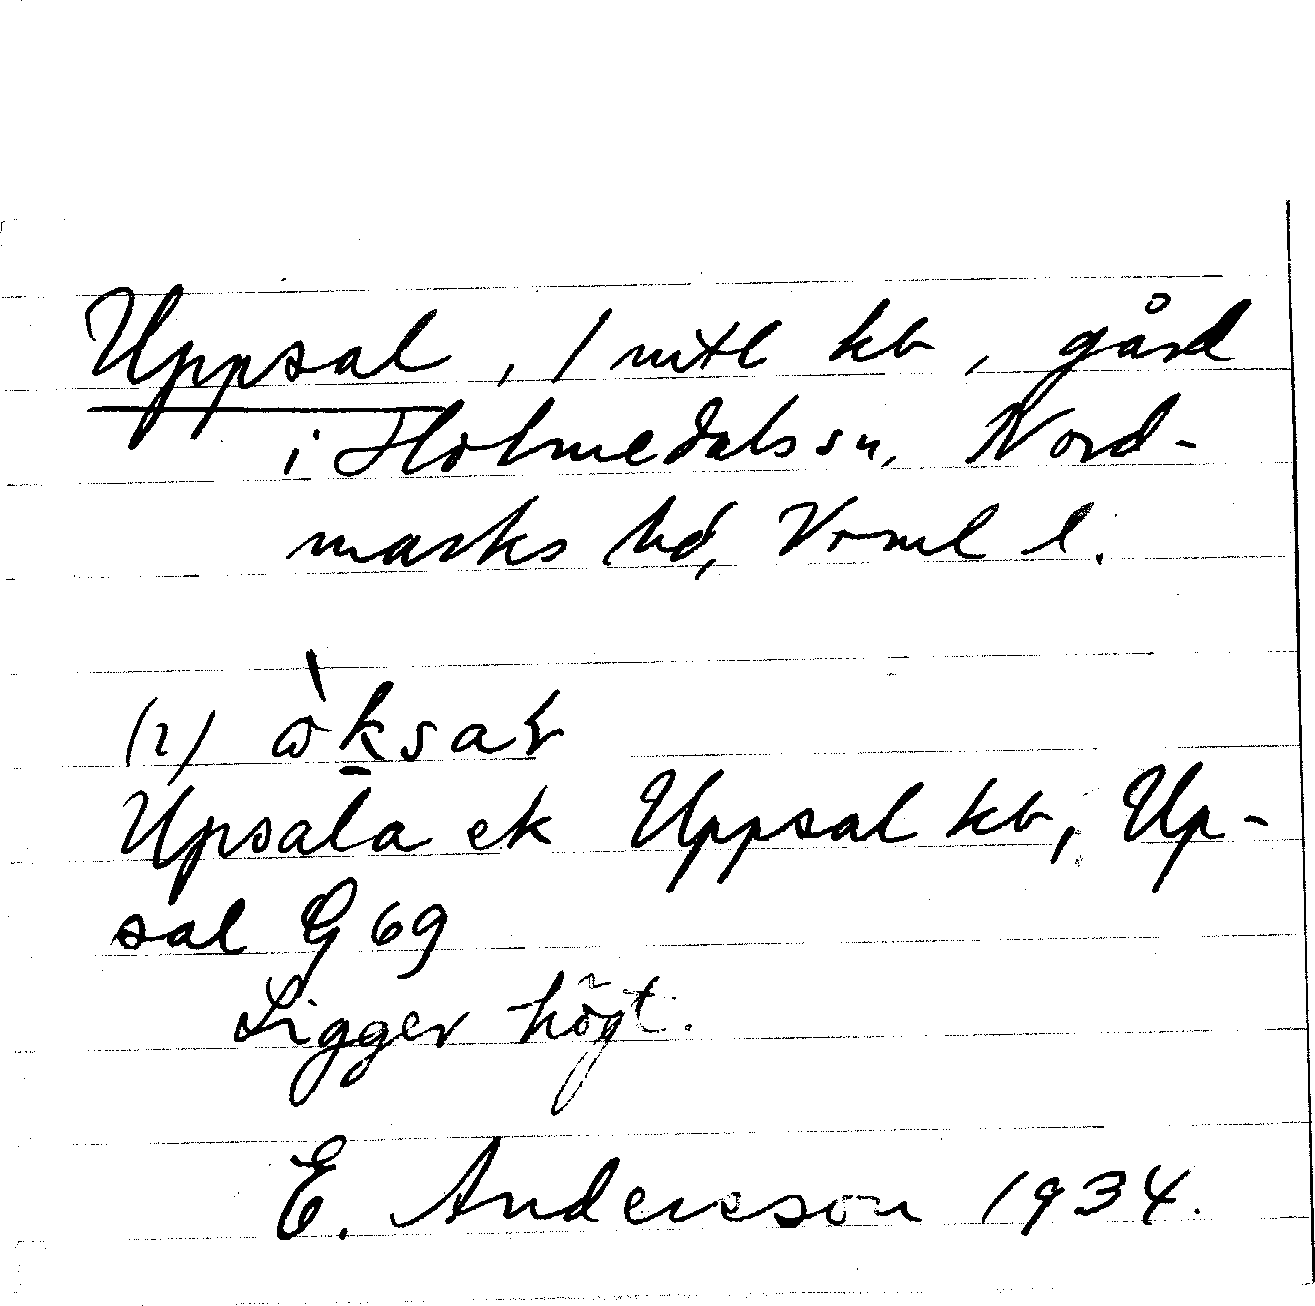 Uppsal, 1 mtl kb, gård
i Holmedals sn, Nord-
marks hd, Vrml l.
(2)
Upsala ek Uppsal kb, Up-
sal G 69
Ligger högt.
E. Andersson 1934.